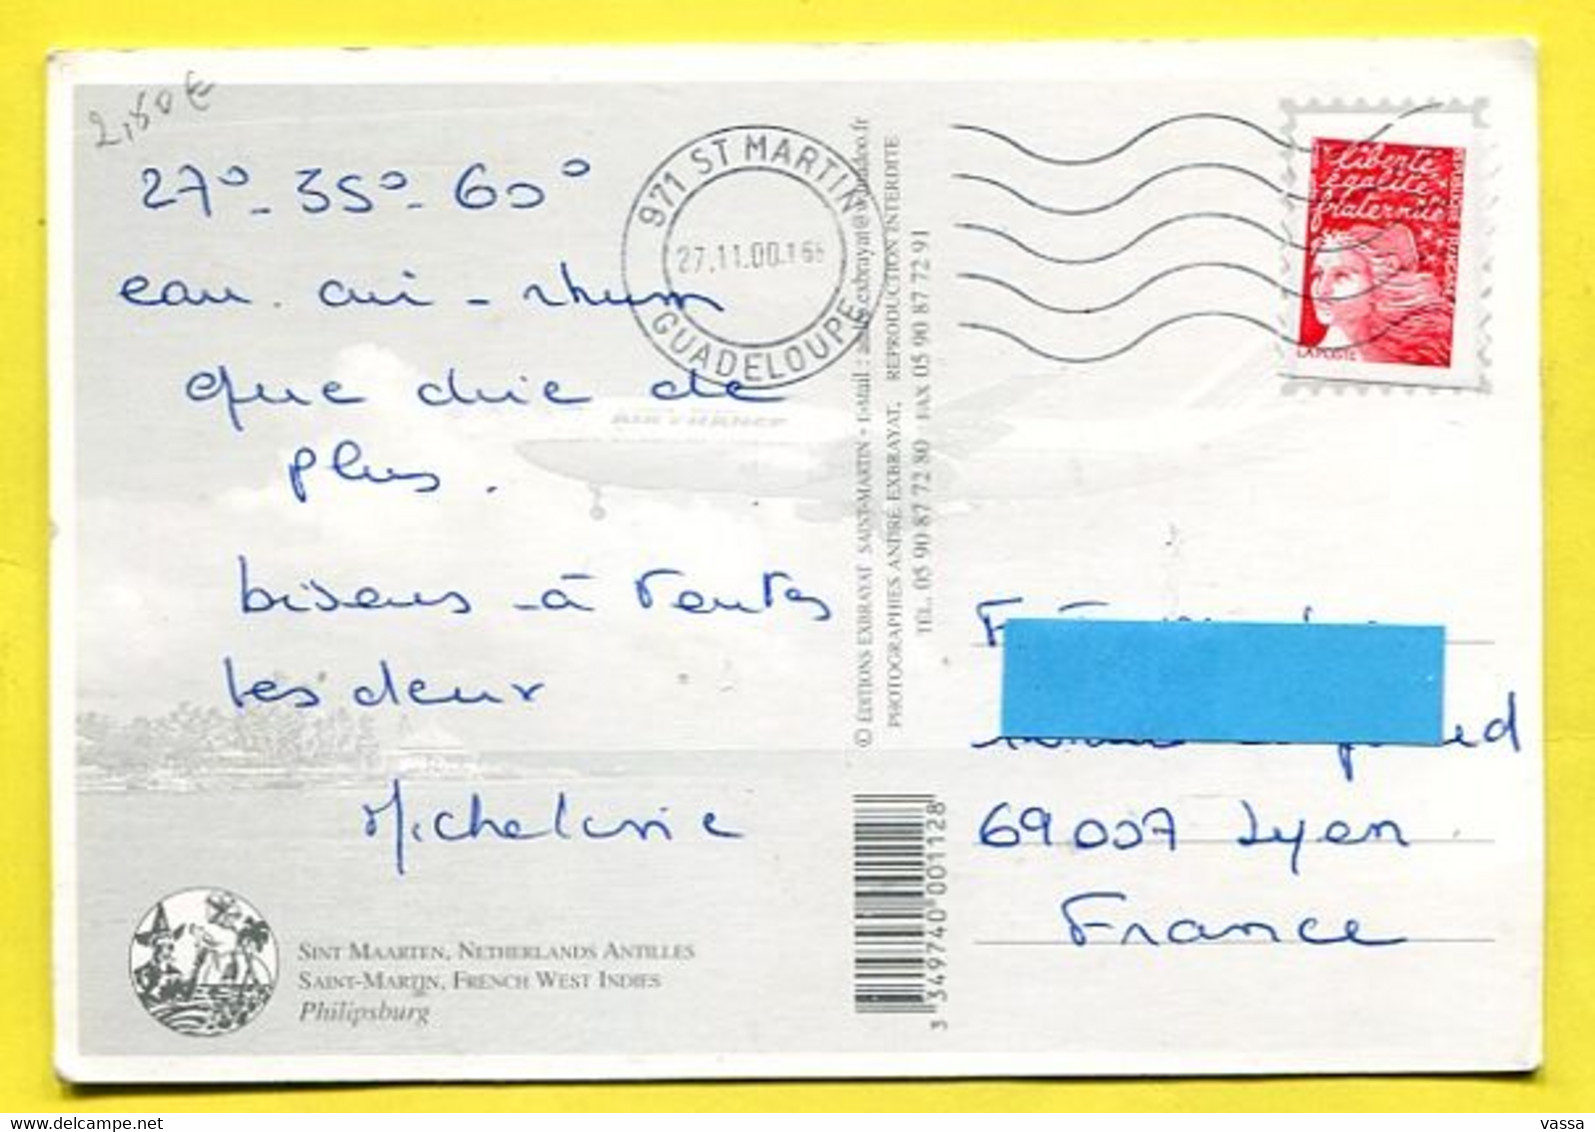 2,80€
27° - 35° - 60°
eau - air - rhum
que dire de
plus.
bisous - à toutes
les deux
Micheline
971 ST MARTIN
27.11.00.16
GUADELOUPE
liberté
égalité
fraternité
LA POSTE
AIR FRANCE
© EDITIONS EXBRAYAT SAINT-MARTIN • E-Mail : exbrayat@wanadoo.fr
PHOTOGRAPHIES ANDRÉ EXBRAYAT, REPRODUCTION INTERDITE
TÉL. 05 90 87 72 80 FAX 05 90 87 72 91
3 349740 001128
69007 Lyon
France
SINT MAARTEN, NETHERLANDS ANTILLES
SAINT-MARTIN, FRENCH WEST INDIES
Philipsburg
www.delcampe.net
vassa